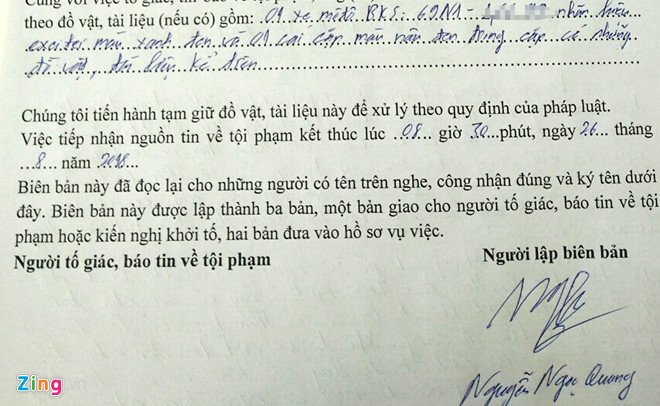 theo đồ vật, tài liệu (nếu có) gồm: 01 xe môtô BKS: 69N1 - nhãn hiệu
exciter màu xanh đen và 01 cái cặp màu nâu đen trong cặp có những
đồ vật,
Chúng tôi tiến hành tạm giữ đồ vật, tài liệu này để xử lý theo quy định của pháp luật.
Việc tiếp nhận nguồn tin về tội phạm kết thúc lúc ..08... giờ 30...phút, ngày 26... tháng
...8... năm 2018...
Biên bản này đã đọc lại cho những người có tên trên nghe, công nhận đúng và ký tên dưới
đây. Biên bản này được lập thành ba bản, một bản giao cho người tố giác, báo tin về tội
phạm hoặc kiến nghị khởi tố, hai bản đưa vào hồ sơ vụ việc.
Người tố giác, báo tin về tội phạm
Người lập biên bản
Nguyễn Ngọc Quang
Zing